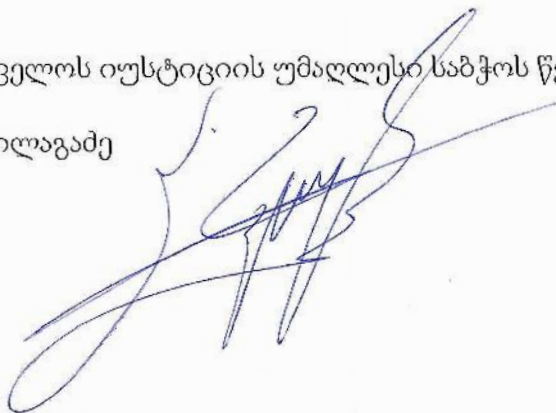 ველოს იუსტიციის უმაღლესი საბჭოს წე
ილაგაძე